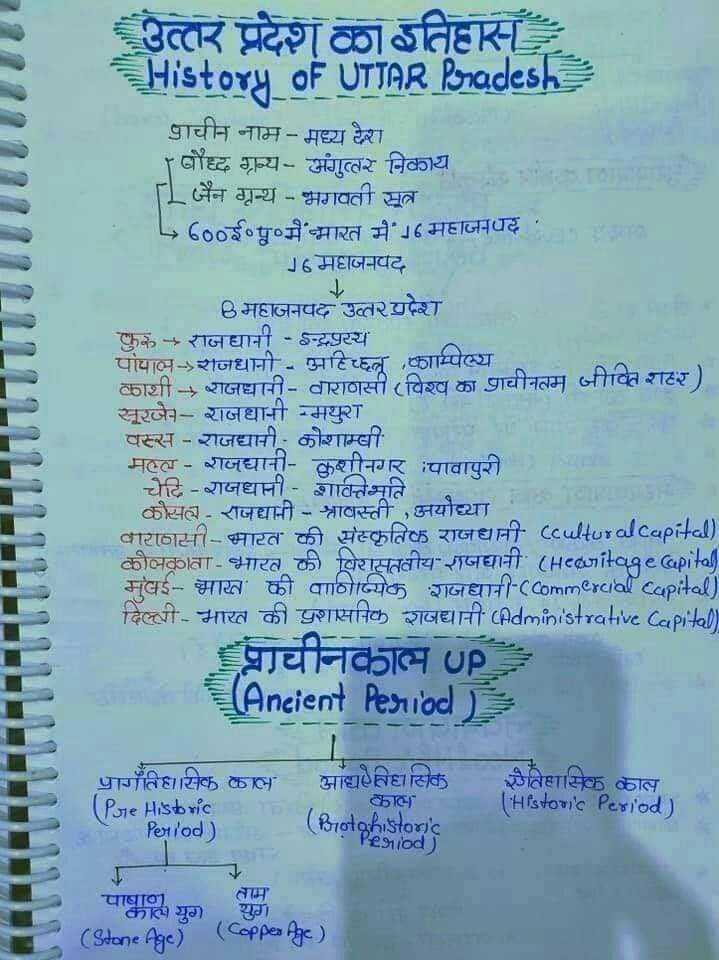 उत्तर प्रदेश का इतिहास
History of UTTAR Pradesh
प्राचीन नाम - मध्य देश
बौध्द ग्रन्थ - अंगुत्तर निकाय
जैन ग्रन्थ - भगवती सूत्र
600ई०पू०में भारत में 16 महाजनपद
16 महाजनपद
8 महाजनपद उत्तर प्रदेश
कुरू → राजधानी - इन्द्रप्रस्थ
पांचाल → राजधानी - अहिच्छत्र, काम्पिल्य
काशी → राजधानी - वाराणसी (विश्व का प्राचीनतम जीवित शहर)
सूरसेन - राजधानी - मथुरा
वत्स - राजधानी - कोशाम्बी
मल्ल - राजधानी - कुशीनगर, पावापुरी
चेदि - राजधानी - शक्तिमति
कोसल - राजधानी - श्रावस्ती, अयोध्या
वाराणसी - भारत की संस्कृतिक राजधानी (Cultural Capital)
कोलकाता - भारत की विरासततीय राजधानी (Heavitage Capital)
मुंबई - भारत की वाणिज्यिक राजधानी (Commercial Capital)
दिल्ली - भारत की प्रशासनिक राजधानी (Administrative Capital)
प्राचीनकाल UP
(Ancient Period)
प्रागैतिहासिक काल आद्यऐतिहासिक काल ऐतिहासिक काल
(Pre Historic Period) (Protohistoric Period) (Historic Period)
पाषाण काल युग ताम्र युग
(Stone Age) (Copper Age)